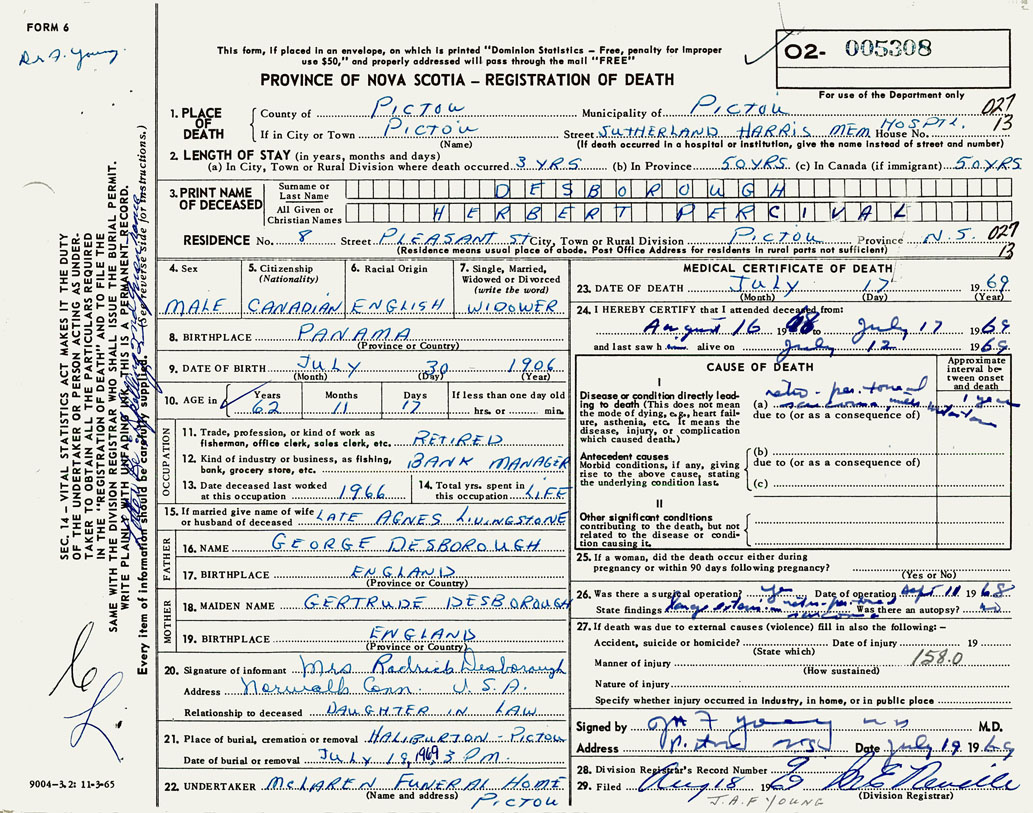 FORM 6
Dr A. Young
This form, if placed in an envelope, on which is printed "Dominion Statistics – Free, penalty for improper
use $50," and properly addressed will pass through the mail "FREE"
PROVINCE OF NOVA SCOTIA – REGISTRATION OF DEATH
02- 005308
For use of the Department only
027
13
1. PLACE OF DEATH
County of PICTOU Municipality of PICTOU
If in City or Town PICTOU Street SUTHERLAND HARRIS MEM HOSPTL. House No.
(Name) (If death occurred in a hospital or institution, give the name instead of street and number)
2. LENGTH OF STAY (in years, months and days)
(a) In City, Town or Rural Division where death occurred 3 YRS (b) In Province 50 YRS. (c) In Canada (if immigrant) 50 YRS
3. PRINT NAME OF DECEASED
Surname or Last Name DESBOROUGH
All Given or Christian Names HERBERT PERCIVAL
RESIDENCE No. 8 Street PLEASANT ST City, Town or Rural Division PICTOU Province N.S. 027
(Residence means usual place of abode. Post Office Address for residents in rural parts not sufficient) 13
4. Sex
MALE
5. Citizenship (Nationality)
CANADIAN
6. Racial Origin
ENGLISH
7. Single, Married, Widowed or Divorced (write the word)
WIDOWER
8. BIRTHPLACE PANAMA
(Province or Country)
9. DATE OF BIRTH JULY 30 1906
(Month) (Day) (Year)
10. AGE in Years Months Days If less than one day old
62 11 17 hrs. or min.
OCCUPATION
11. Trade, profession, or kind of work as
fisherman, office clerk, sales clerk, etc. RETIRED
12. Kind of industry or business, as fishing,
bank, grocery store, etc. BANK MANAGER
13. Date deceased last worked
at this occupation 1966
14. Total yrs. spent in
this occupation LIFE
15. If married give name of wife
or husband of deceased LATE AGNES LIVINGSTONE
FATHER
16. NAME GEORGE DESBOROUGH
17. BIRTHPLACE ENGLAND
(Province or Country)
MOTHER
18. MAIDEN NAME GERTRUDE DESBOROUGH
19. BIRTHPLACE ENGLAND
(Province or Country)
20. Signature of informant Mrs Redrick Desborough
Address Norwalk Conn. U.S.A.
Relationship to deceased DAUGHTER IN LAW
21. Place of burial, cremation or removal HALIBURTON - PICTOU
Date of burial or removal JULY 19, 1969 3 P.M.
22. UNDERTAKER McLAREN FUNERAL HOME
(Name and address) PICTOU
MEDICAL CERTIFICATE OF DEATH
23. DATE OF DEATH July 17 1969
(Month) (Day) (Year)
24. I HEREBY CERTIFY that I attended deceased from:
August 16 19 to July 17 1969
and last saw h alive on July 1969
CAUSE OF DEATH
Approximate interval between onset and death
I
Disease or condition directly leading to death (This does not mean the mode of dying, e.g., heart failure, asthenia, etc. It means the disease, injury, or complication which caused death.)
(a) retro-peritoneal sarcoma, 1 year
due to (or as a consequence of)
Antecedent causes
Morbid conditions, if any, giving rise to the above cause, stating the underlying condition last.
(b)
due to (or as a consequence of)
(c)
II
Other significant conditions
contributing to the death, but not related to the disease or condition causing it.
25. If a woman, did the death occur either during
pregnancy or within 90 days following pregnancy?
(Yes or No)
26. Was there a surgical operation? yes Date of operation Sept. 11 1968
State findings retro-peritoneal sarcoma Was there an autopsy? no
27. If death was due to external causes (violence) fill in also the following: –
Accident, suicide or homicide? Date of injury 19
(State which)
Manner of injury 158.0
(How sustained)
Nature of injury
Specify whether injury occurred in industry, in home, or in public place
Signed by J A F Young MD M.D.
Address Pictou NS Date July 19 1969
28. Division Registrar's Record Number
29. Filed Aug 18 19
(Division Registrar)
J.A.F YOUNG
SEC. 14 – VITAL STATISTICS ACT MAKES IT THE DUTY
OF THE UNDERTAKER OR PERSON ACTING AS UNDER-
TAKER TO OBTAIN ALL THE PARTICULARS REQUIRED
IN THE "REGISTRATION OF DEATH" AND TO FILE THE
SAME WITH THE DIVISION REGISTRAR WHO SHALL ISSUE THE BURIAL PERMIT.
WRITE PLAINLY WITH UNFADING INK. THIS IS A PERMANENT RECORD.
Every item of information should be carefully supplied. (See reverse side for instructions.)
9004-3.2: 11-3-65